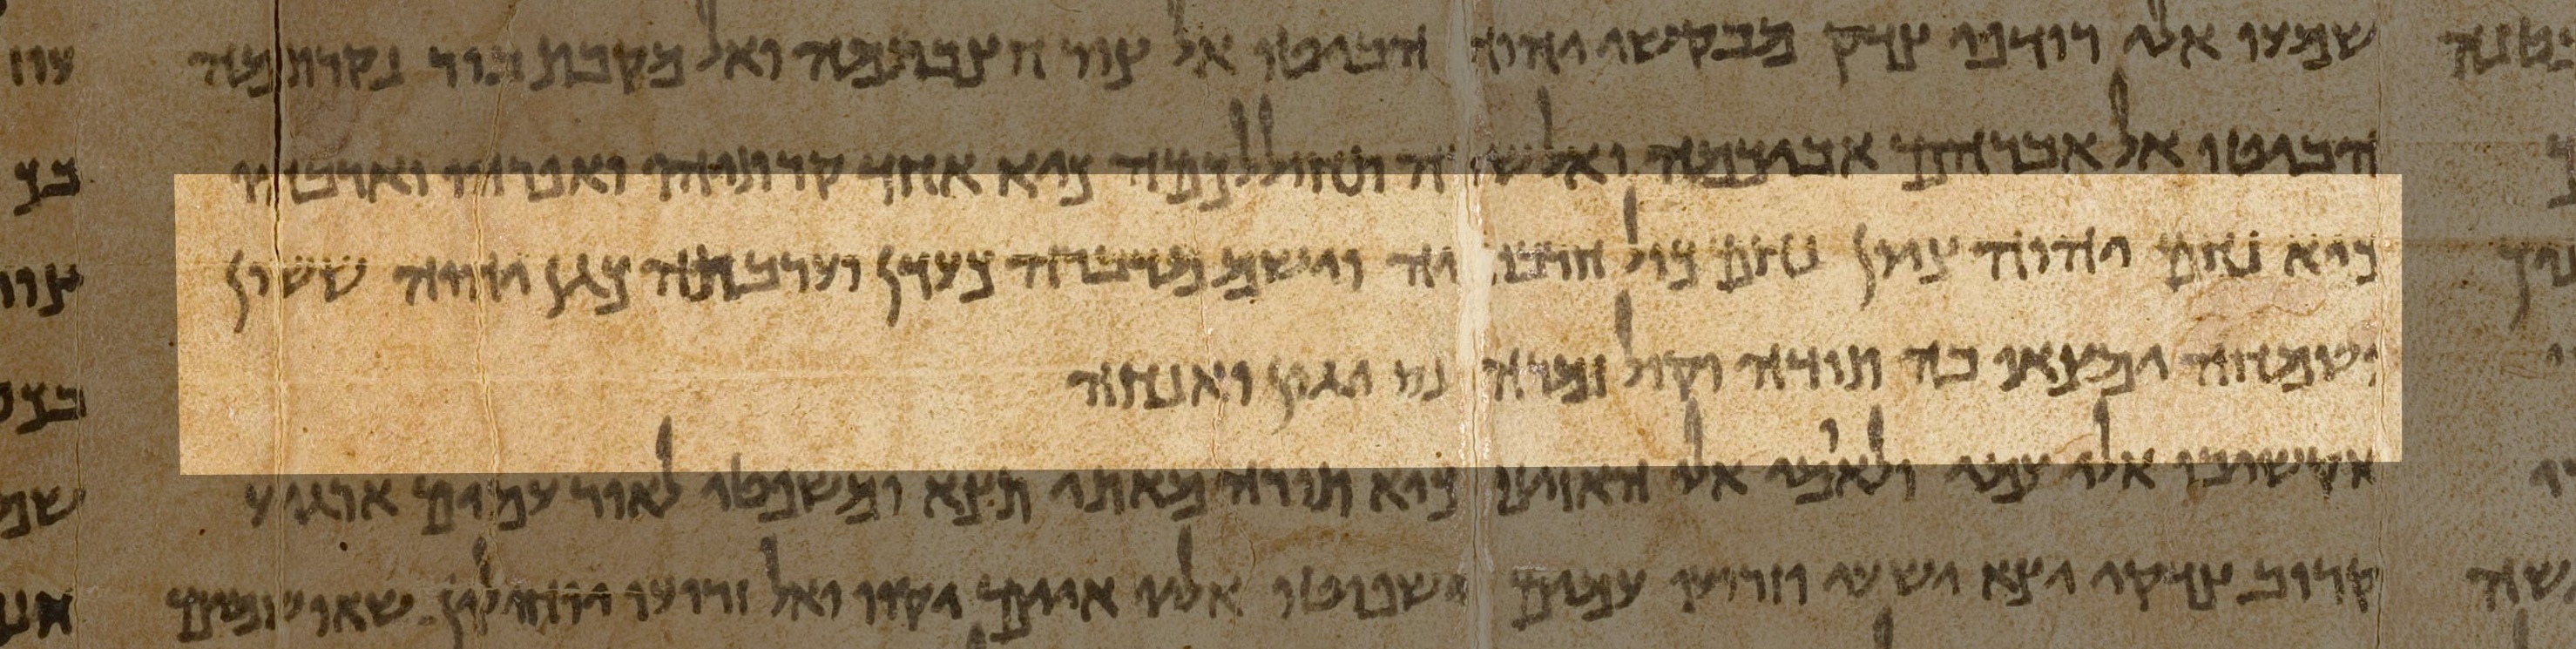 שמעו אלי רודפי צדק מבקשי יהוה הביטו אל צור חצבתמה ואל מקבת בור נקרתמה
הביטו אל אברהם אביכמה ואל שרה תחוללכמה כיא אחד קרתיהו ואפרהו וארבהו
כיא נחם יהוה ציון נחם כול חרבותיה וישם מדברה כעדן וערבתה כגן יהוה ששון
ושמחה ימצאו בה תודה וקול זמרה נס יגון ואנחה
הקשיבו אלי עמי ולאומי אלי האזינו כיא תורה מאתי תצא ומשפטי לאור עמים ארגיע
קרוב צדקי יצא ישעי וזרועו עמים ישפוטו אליו איים יקוו ואל זרועו יוחילון שאו שמים